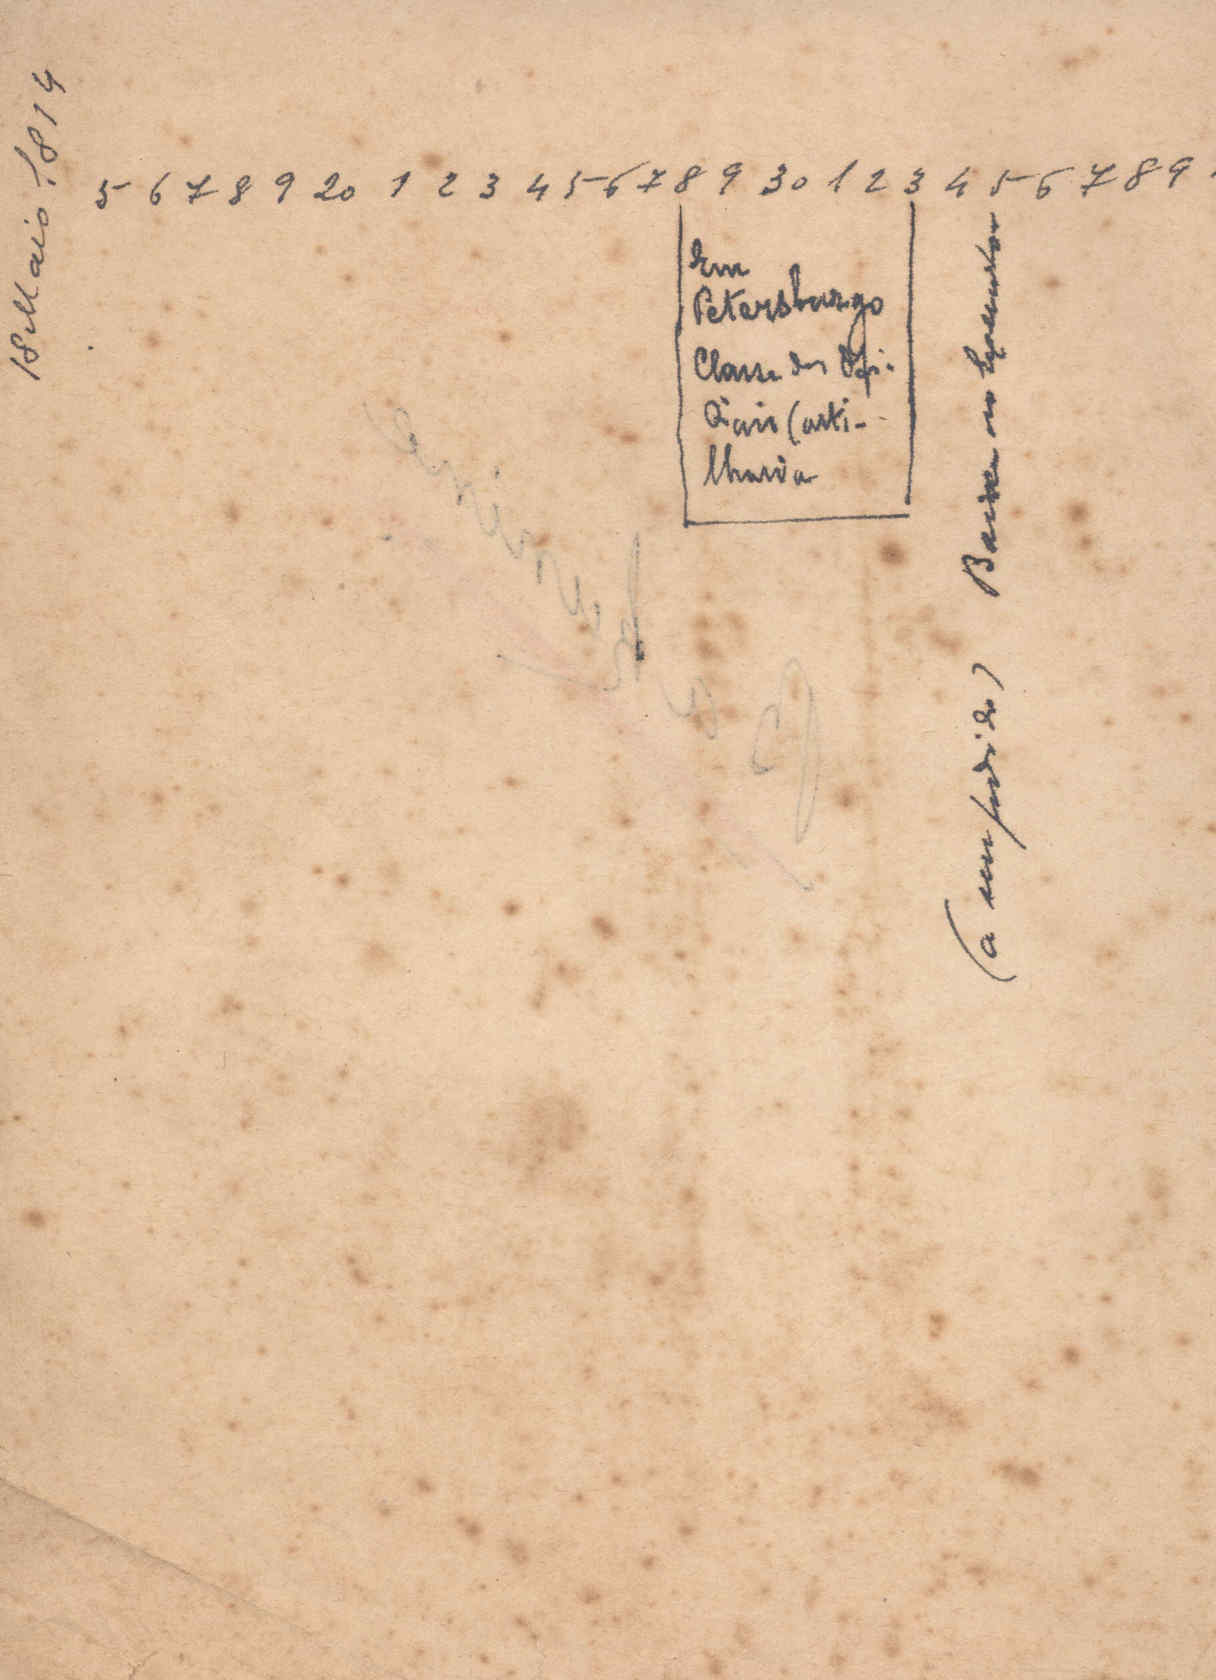 18 Maio 1814
5 6 7 8 9 20 1 2 3 4 5 6 7 8 9 30 1 2 3 4 5 6 7 8 9
Em
Petersburgo
Classe dos Ofi-
ciais (arti-
lharia
Baixa no Exercito
(a seu pedido)
Bakunine